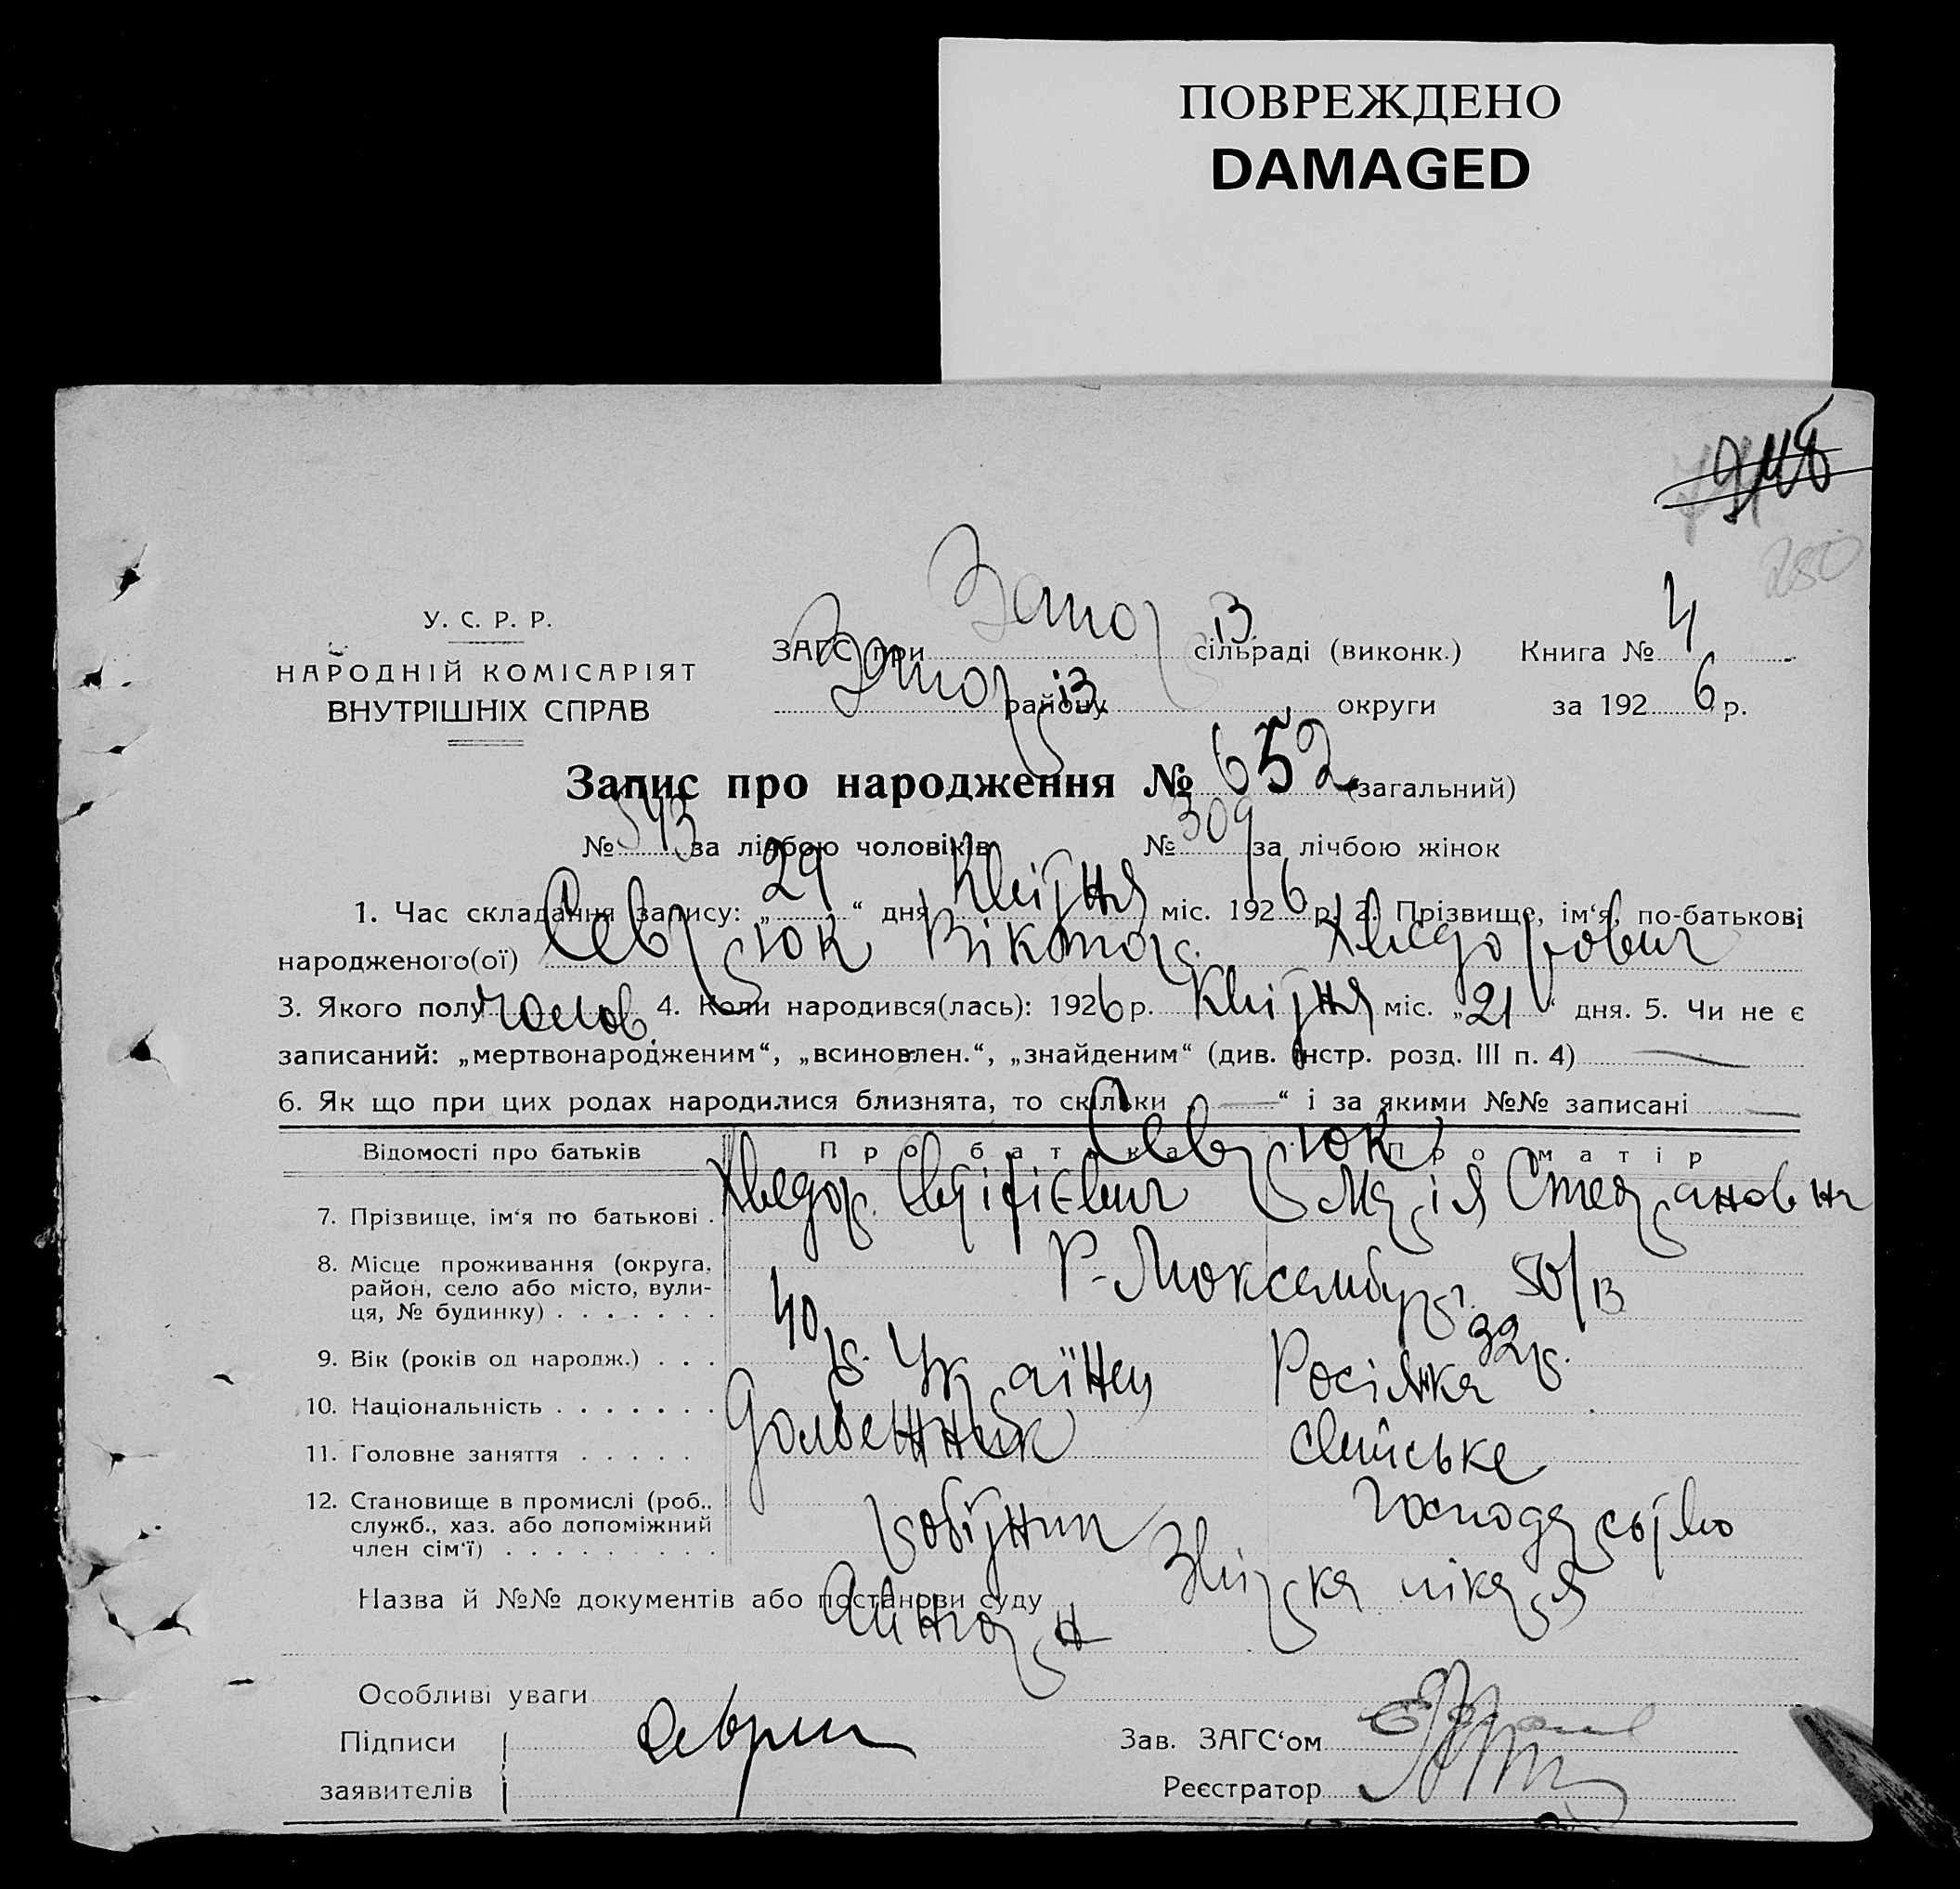 ПОВРЕЖДЕНО
DAMAGED
280
У. С. Р. Р.
НАРОДНІЙ КОМІСАРІЯТ
ВНУТРІШНІХ СПРАВ
ЗАГС при Запоріз сільраді (виконк.) Книга № 4
Запоріз району округи за 1926 р.
Запис про народження № 652 (загальний)
№ 343 за лічбою чоловіків № 309 за лічбою жінок
1. Час складання запису: „29“ дня Квітня міс. 1926 р. 2. Прізвище, ім‘я, по-батькові
народженого(ої) Севрюк Віктор Хведорович
3. Якого полу чолов. 4. Коли народився(лась): 1926 р. Квітня міс. „21“ дня. 5. Чи не є
записаний: „мертвонародженим“, „всиновлен.“, „знайденим“ (див. інстр. розд. III п. 4) —
6. Як що при цих родах народилися близнята, то скільки „—“ і за якими №№ записані —
Відомості про батьків Про батька Про матір
Севрюк
7. Прізвище, ім‘я по батькові . Хведор Марія Степановна
8. Місце проживання (округа, район, село або місто, вулиця, № будинку) . . . . . . . Р-Люксембург. 50/13
9. Вік (років од народж.) . . . 40 р. 32 р.
10. Національність . . . . . . . Українец Росіянка
11. Головне заняття . . . . . Долбежник
12. Становище в промислі (роб., служб., хаз. або допоміжний член сім‘ї) . . . . . . . . . робітник господарство
Назва й №№ документів або постанови суду Звірка лікаря
Особливі уваги
Підписи
заявителів Севрюк
Зав. ЗАГС‘ом
Реєстратор